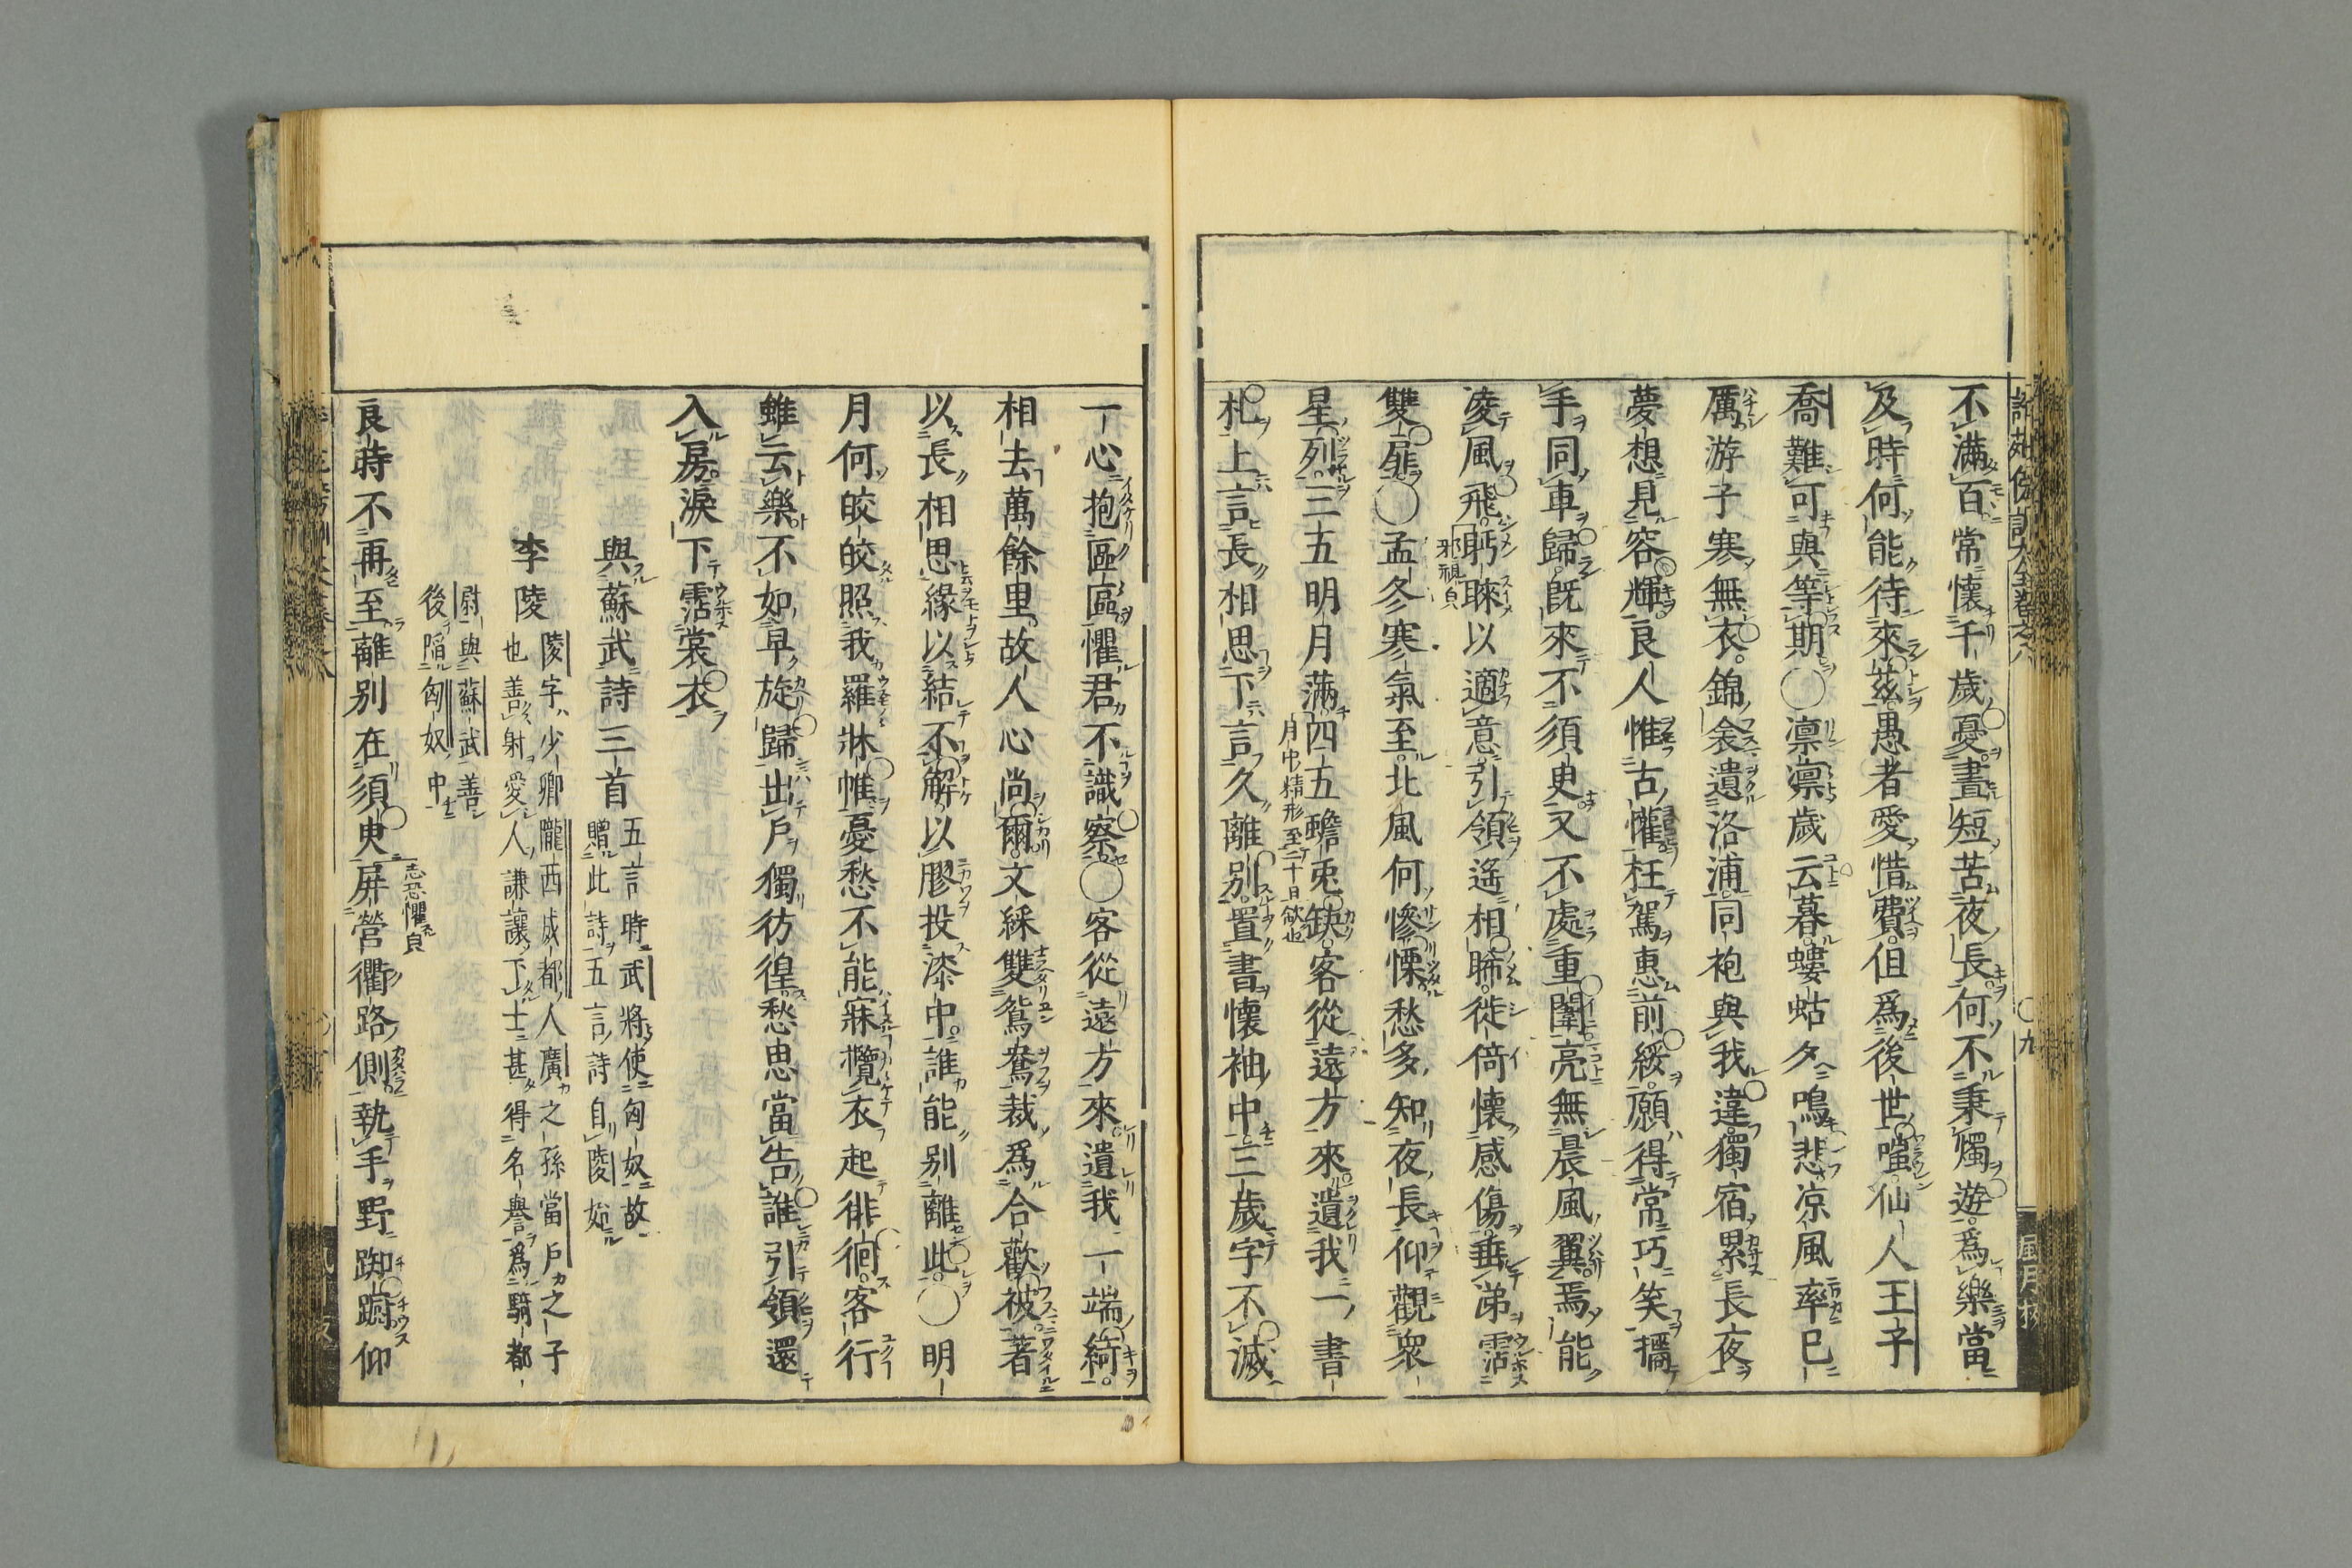 不滿百常懷千歲憂晝短苦夜長何不秉燭遊爲樂當
及時何能待來茲愚者愛惜費但爲後世嗤仙人王子
喬難可與等期〇凛凛歲云暮螻蛄夕鳴悲凉風率已
厲游子寒無衣錦衾遺洛浦同袍與我違獨宿累長夜
夢想見容輝良人惟古懽枉駕惠前綏願得常巧笑攜
手同車歸既來不須臾又不處重闈亮無晨風翼焉能
凌風飛眄睞以適意引領遙相睎徙倚懷感傷垂涕霑
邪視皃
雙扉〇孟冬寒氣至北風何慘慄愁多知夜長仰觀衆
星列三五明月滿四五蟾兎缺客從遠方來遺我一書
月中精形至二十日欲也
札上言長相思下言久離別置書懷袖中三歲字不滅
九
一心抱區區懼君不識察〇客從遠方來遺我一端綺
相去萬餘里故人心尚爾文綵雙鴛鴦裁爲合歡被著
以長相思緣以結不解以膠投漆中誰能別離此〇明
月何皎皎照我羅牀幃憂愁不能寐攬衣起徘徊客行
雖云樂不如早旋歸出戶獨彷徨愁思當告誰引領還
入房淚下霑裳衣
與蘇武詩三首
五言時武將使匈奴故
贈此詩五言詩自陵始
李陵
陵字少卿隴西成都人廣之孫當戶之子
也善射愛人謙讓下士甚得名譽爲騎都
尉與蘇武善
後陷匈奴中
良時不再至離別在須臾屏營衢路側執手野踟躕仰
志恐懼皃